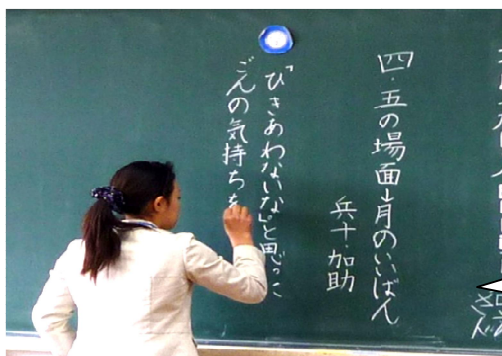 四・五の場面↓月のいいばん
兵十・加助
「ひきあわないな。」と思った
ごんの気持ちを